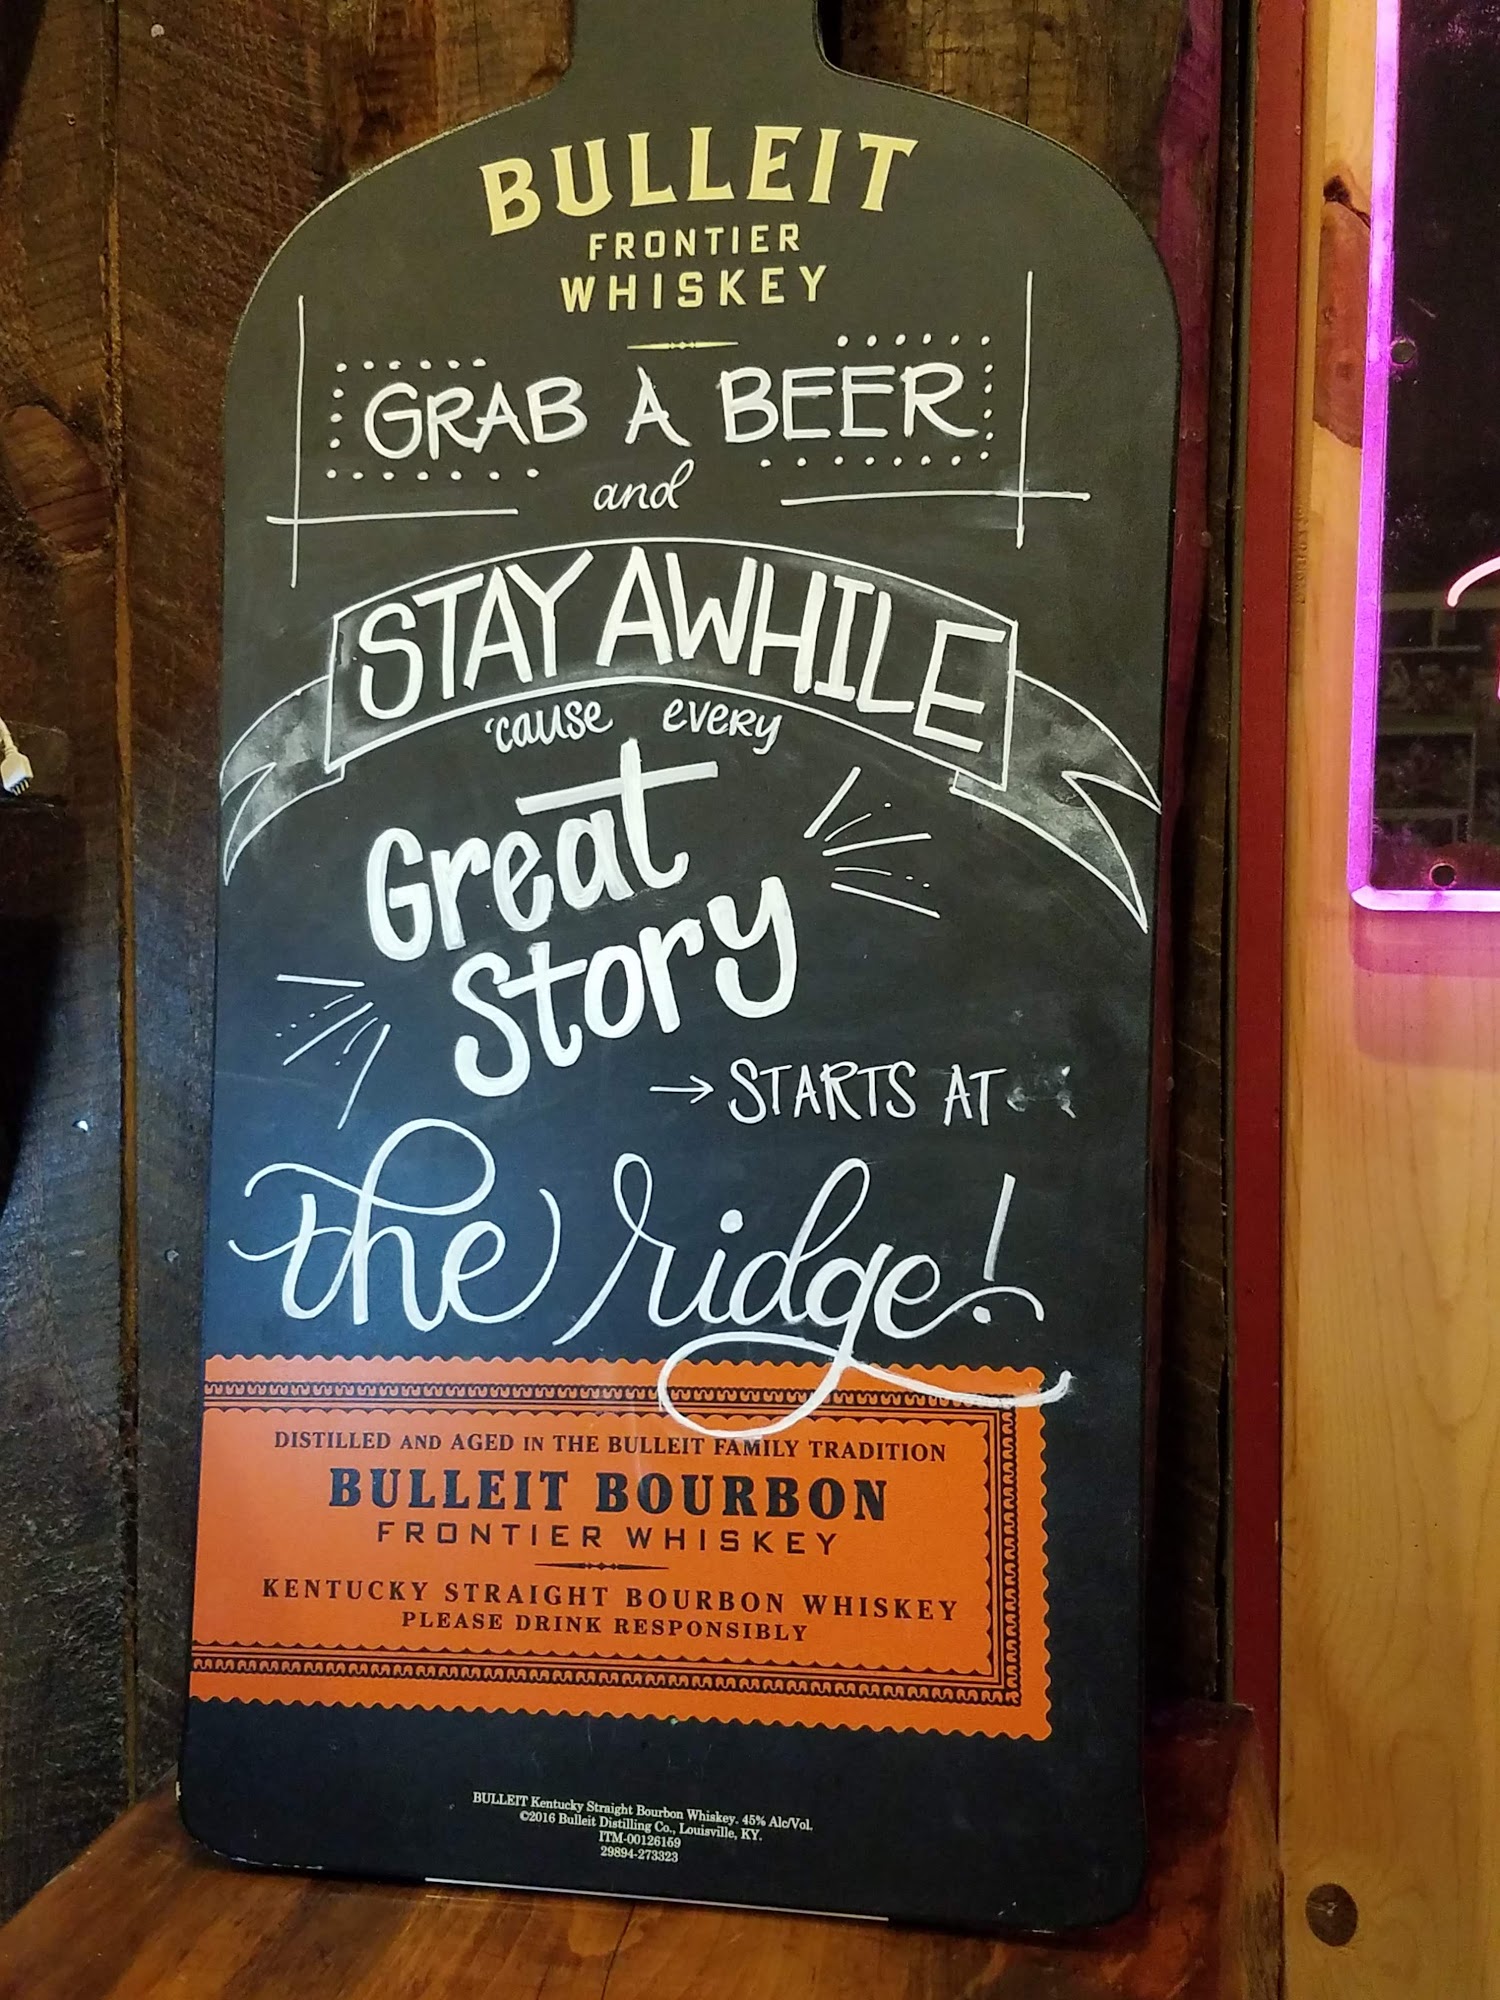 BULLEIT
FRONTIER
WHISKEY
GRAB A BEER
and
STAY AWHILE
'cause every
Great
Story
→ STARTS AT
the ridge!
DISTILLED AND AGED IN THE BULLEIT FAMILY TRADITION
BULLEIT BOURBON
FRONTIER WHISKEY
KENTUCKY STRAIGHT BOURBON WHISKEY
PLEASE DRINK RESPONSIBLY
BULLEIT Kentucky Straight Bourbon Whiskey. 45% Alc/Vol.
©2016 Bulleit Distilling Co., Louisville, KY.
ITM-00126159
29894-273323